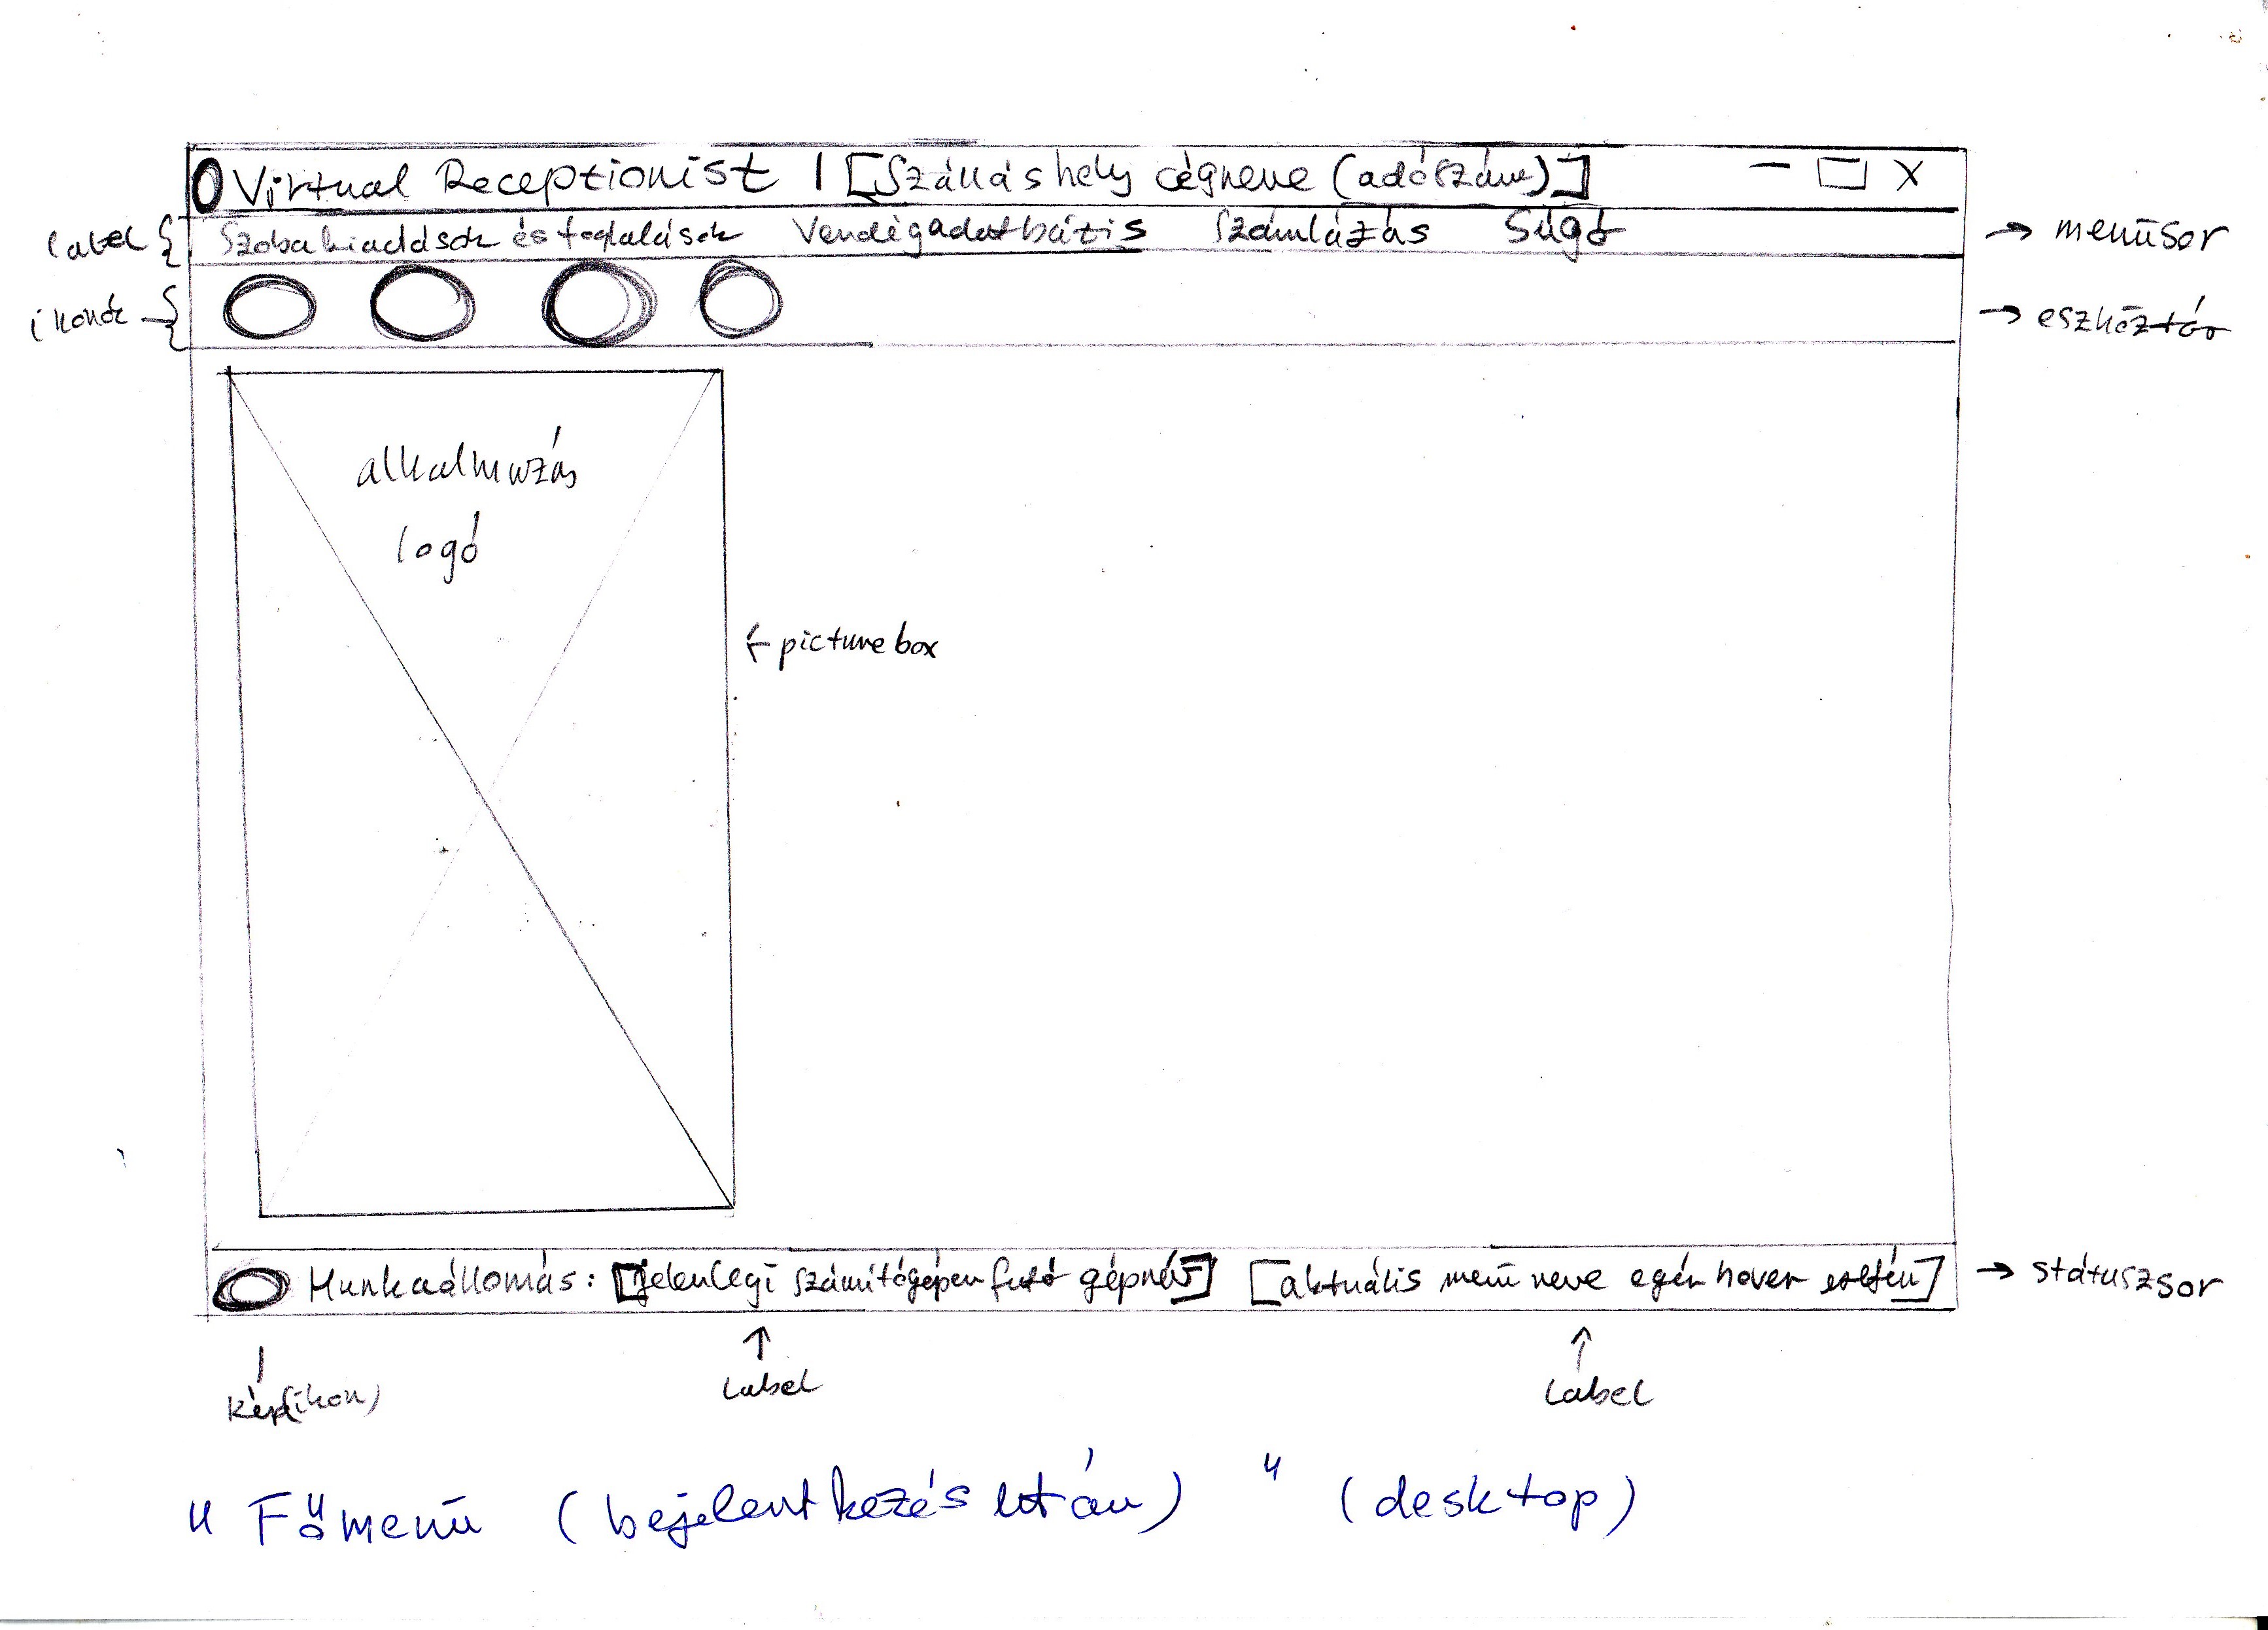 Virtual Receptionist | [Szálláshely cégneve (adószáma)] – □ X
label { Szobakiadások és foglalások Vendégadatbázis Számlázás Súgó → menüsor
ikonok { → eszköztár
alkalmazás
logó
← picturebox
Munkaállomás: [jelenlegi számítógépen futó gépnév] [aktuális menü neve egér hover esetén] → státuszsor
Kép(ikon) Label Label
" Főmenü (bejelentkezés után) " (desktop)